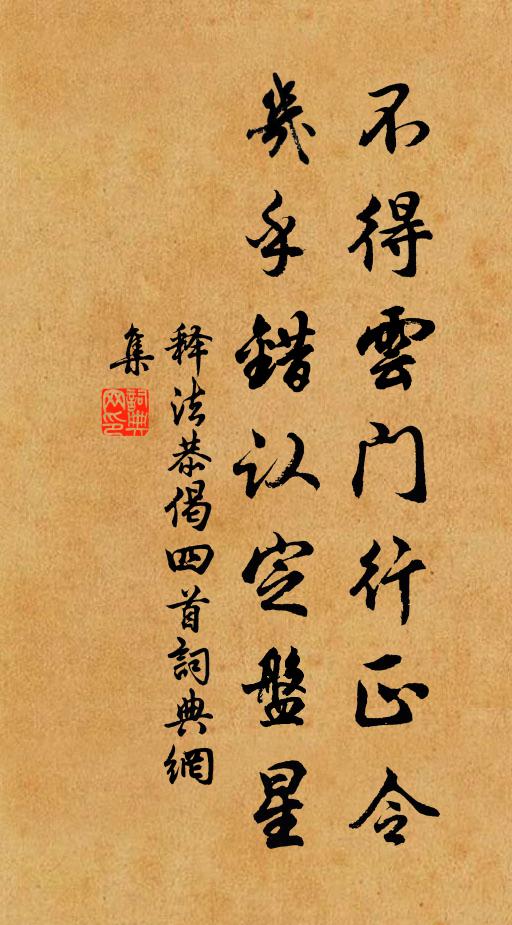 不得雲门行正令
幾乎錯认定盤星
释法恭偈四首詞典網
集
詞典
网印